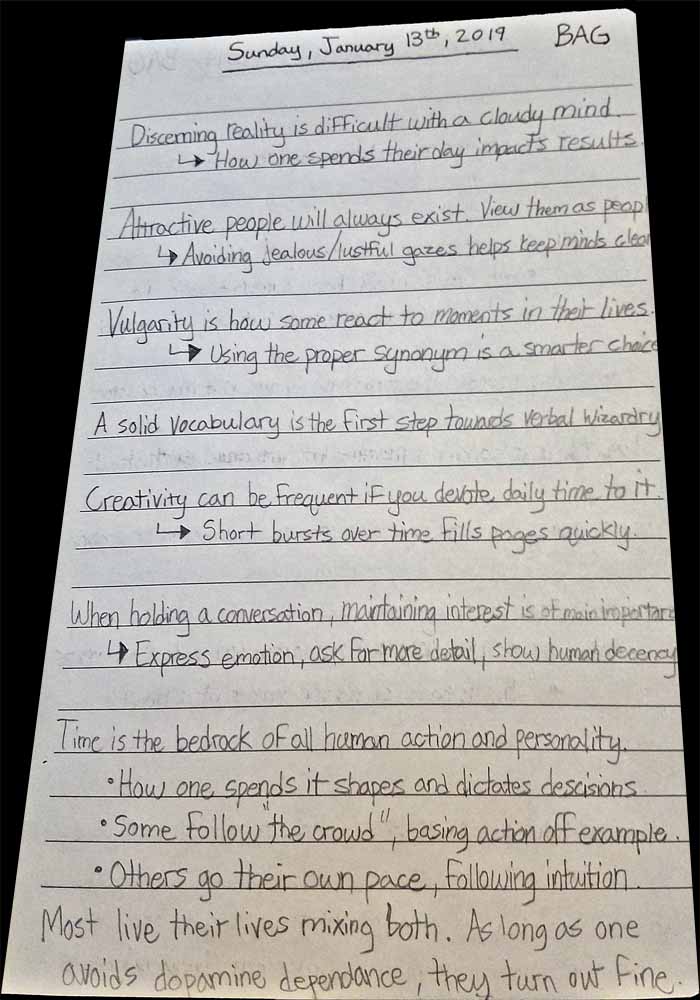 Sunday, January 13th, 2019 BAG
Discerning reality is difficult with a cloudy mind.
↳ How one spends their day impacts results.
Attractive people will always exist. View them as peop
↳ Avoiding jealous/lustful gazes helps keep minds clear
Vulgarity is how some react to moments in their lives.
↳ Using the proper synonym is a smarter choice
A solid vocabulary is the first step towards verbal wizardry
Creativity can be frequent if you devote daily time to it.
↳ Short bursts over time fills pages quickly.
When holding a conversation, maintaining interest is of main importanc
↳ Express emotion, ask for more detail, show human decency
Time is the bedrock of all human action and personality.
• How one spends it shapes and dictates descisions.
• Some follow "the crowd", basing action off example.
• Others go their own pace, following intuition.
Most live their lives mixing both. As long as one
avoids dopamine dependance, they turn out fine.